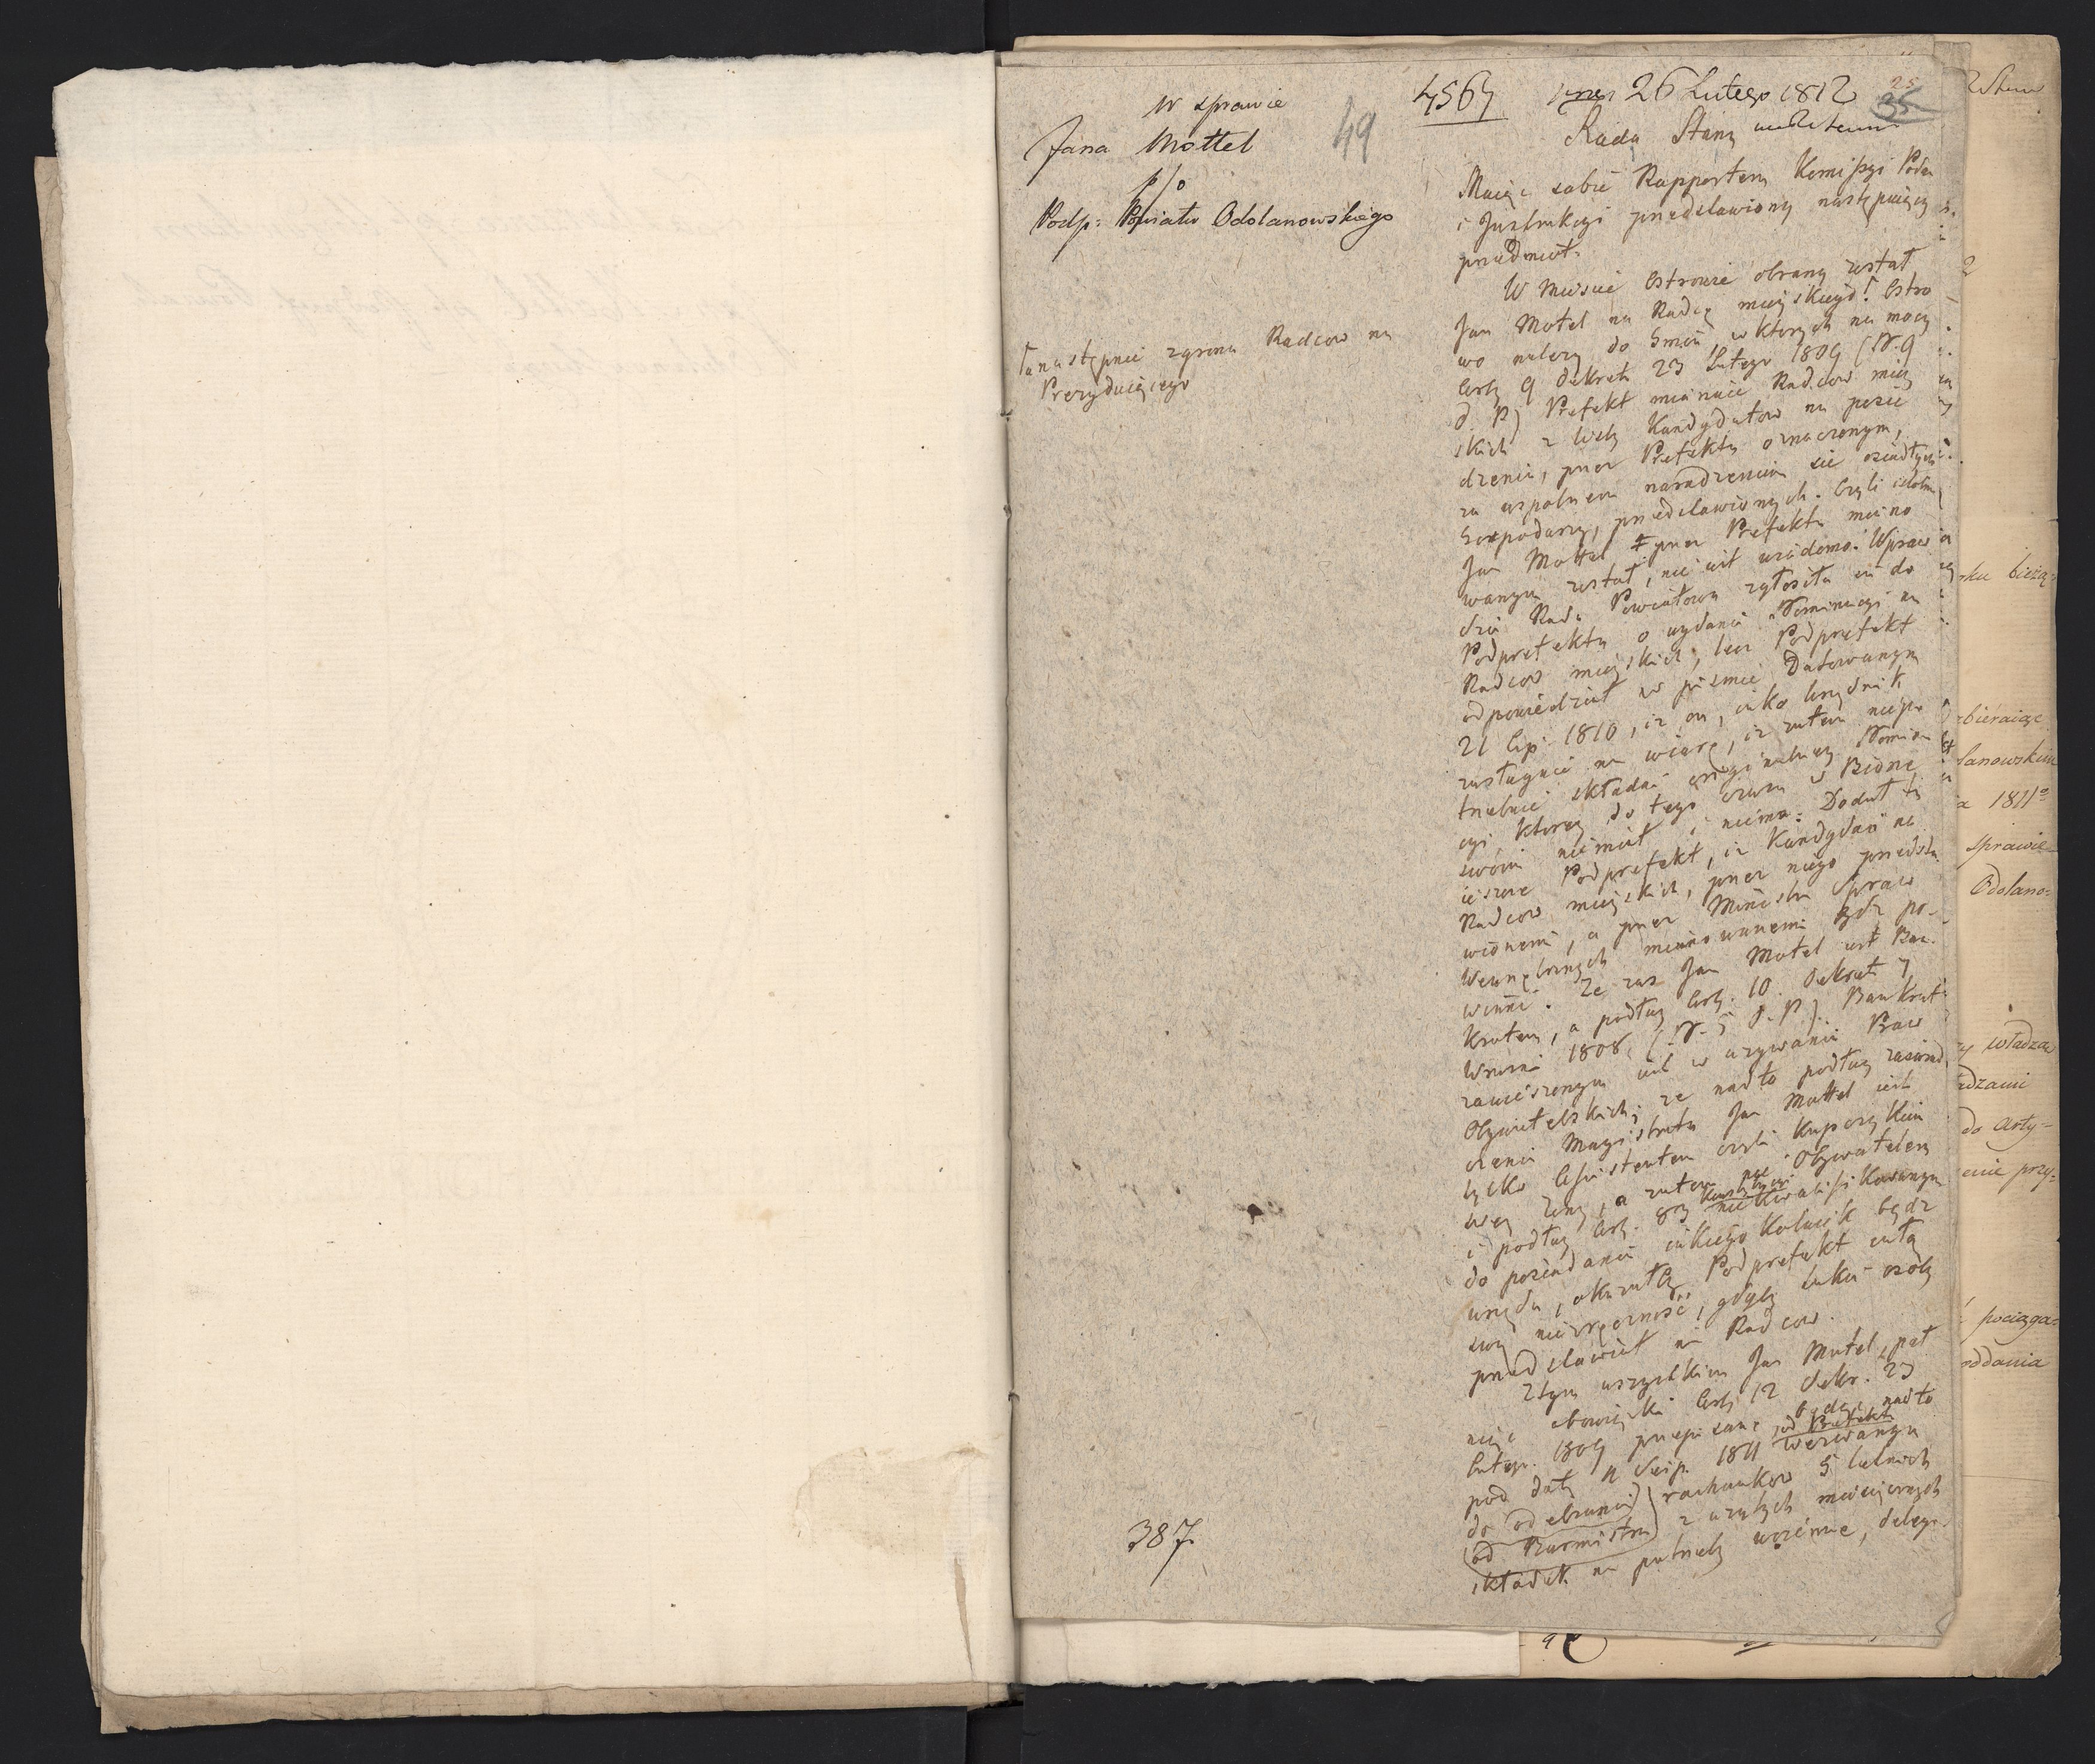 W sprawie
Jana Mottel
p/o
Podp: Powiatu Odolanowskiego
49
a następnie z grona Radcow na
Prezyduiącego
387.
4567 26 Lutego 1812
25
35
Rada Stanu
Maiąc sobie Rapportem Komissyi Podań
i Instrukcyi przedstawiony następuiący
przedmiot.
W Miescie Ostrowie obrany został
Jan Motel na Radcę mieyskiego! Ostro
wo należy do Gmin, w ktorych na mocy
Art. 9 dekretu 23 Lutego 1809 (N. 9
d. P) Prefekt mianuie Radcow miey
skich z listy Kandydatow na posie
dzeniu, przez Prefekta oznaczonym,
za wspolnem naradzeniem się osiadłych
Gospodarzy, przedstawionych. Czyli istotnie
Jan Mottel ‡ przez Prefekta miano
wanym został, nie iest wiadomo. Wpraw
dzie Rada Powiatowa zgłosiła się do
Podprefekta o wydanie Nominacyi na
Radcow mieyskich, lecz Podprefekt
odpowiedział w pismie Datowanym
21 Lip. 1810, iz on, iako Urzędnik
zasługuie na wiarę, iz zatem niepo
trzebuie składać oryginalney Nomina
cyi, ktorey do tego czasu w Biórze
swóim niemiał i niema. Dodał tu
ieszcze Podprefekt, iz Kandydaci na
Radcow mieyskich, przez niego przedsta
wionemi, a przez Ministra Spraw
Wewnętrznych mianowanemi bydz po-
winni. Ze zas Jan Motel iest Ban-
krutem, a podług Art. 10. dekretu 7
Wrzesnia 1808, (N. 5 d. P). Bankrut
zawieszonym iest w uzywaniu Praw
Obywatelskich; ze nadto podług zaswiad
czenia Magistratu Jan Mottel iest
tylko Assistentem czyli kupczykiem
swey zony, a zatem nie Obywatelem
i podług Art. 83 Konstytucyi niekwalifikowanym
do posiadania iakiego kolwiek bądz
urzędu, okazałby Podprefekt całą
swą niezręczność, gdyby takie osoby
przedstawiał na Radcow.
Z tym wszystkim Jan Motel, peł
niąc obowiązki Art. 12 dekr. 23
Lutego. 1809 przepisane, będąc nadto
pod datą 11 Sierp. 1811 od Prefekta wezwanym
do odebrania) rachunkow 5 letnich
(od Burmistrza) z uzytych miesięcznych
składek na potrzeby woienne, delego-
bieżą-
zbieraiąc
lanowskim
1811°
Sprawie
Odolano-
władzav
dzami
do Arty-
enie przy-
pociąga-
oddania